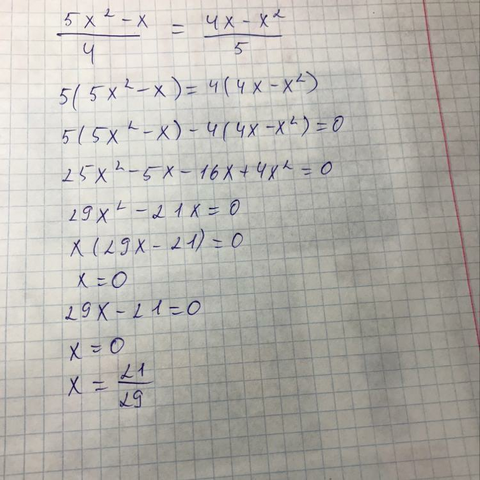 (5x² - x)/4 = (4x - x²)/5
5(5x² - x) = 4(4x - x²)
5(5x² - x) - 4(4x - x²) = 0
25x² - 5x - 16x + 4x² = 0
29x² - 21x = 0
x(29x - 21) = 0
x = 0
29x - 21 = 0
x = 0
x = 21/29